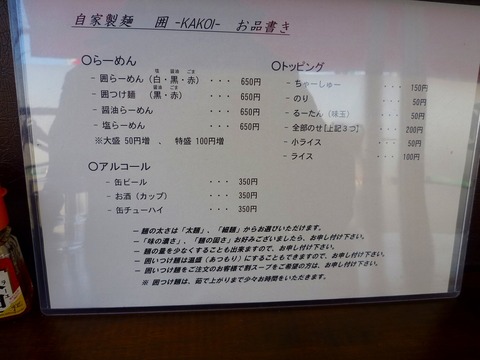 自家製麺 囲 -KAKOI- お品書き
〇らーめん
塩 醤油 ごま
- 囲らーめん (白・黒・赤) ・・・ 650円
醤油 ごま
- 囲つけ麺 (黒・赤) ・・・ 650円
- 醤油らーめん ・・・ 650円
- 塩らーめん ・・・ 650円
※大盛 50円増 、 特盛 100円増
〇アルコール
- 缶ビール ・・・ 350円
- お酒 (カップ) ・・・ 350円
- 缶チューハイ ・・・ 350円
〇トッピング
- ちゃーしゅー ・・・ 150円
- のり ・・・ 50円
- るーたん (味玉) ・・・ 50円
- 全部のせ [上記3つ] ・・・ 200円
- 小ライス ・・・ 50円
- ライス ・・・ 100円
- 麺の太さは「太麺」、「細麺」からお選びいただけます。
- 「味の濃さ」、「麺の固さ」お好みございましたら、お申し付け下さい。
- 麺の量を少なくすることも出来ますので、お申し付け下さい。
- 囲いつけ麺は温盛 (あつもり) にすることもできますので、お申し付け下さい。
- 囲いつけ麺をご注文のお客様で割スープをご希望の方は、お申し付け下さい。
※ 囲つけ麺は、茹で上がりまで少々お時間をいただきます。